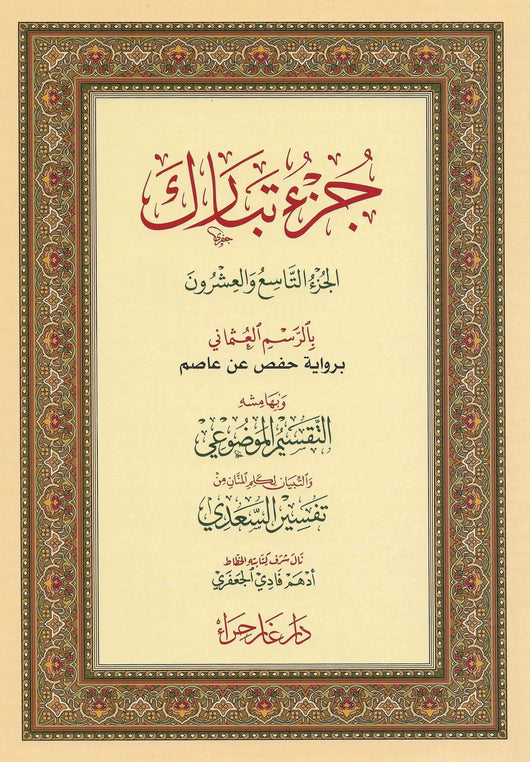 جُزْءُ تَبَارَكَ
جعفري
الجُزْءُ التَّاسِعُ وَالعِشْرُونَ
بِالرَّسْمِ العُثْمَانِي
برواية حفص عن عاصم
وَبِهَامِشِهِ
التَّقْسِيمُ المَوْضُوعِيّ
وَالتِّبْيَان لِكَلِمِ المَنَّانِ مِن
تَفْسِيرِ السَّعْدِيّ
نَالَ شَرَفَ كِتَابَتِهِ الخَطَّاط
أَدْهَم فَادِي الجَعْفَرِي
دَار غَار حِرَاء